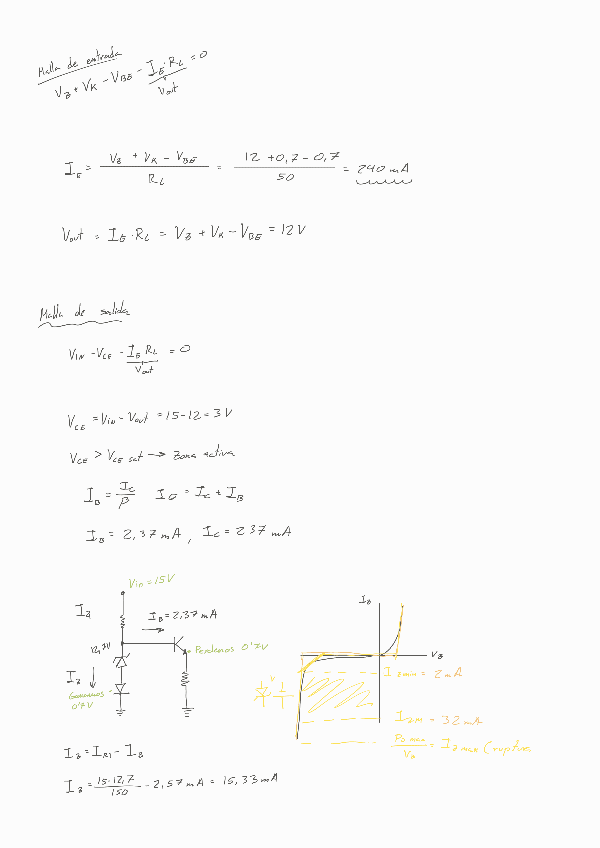 Malla de entrada
V_Z + V_K - V_BE - I_E · R_L = 0
V_out
I_E = (V_Z + V_K - V_BE) / R_L = (12 + 0,7 - 0,7) / 50 = 240 mA
V_out = I_E · R_L = V_Z + V_K - V_BE = 12 V
Malla de salida
V_IN - V_CE - I_E R_L = 0
V_out
V_CE = V_IN - V_out = 15 - 12 = 3 V
V_CE > V_CE sat → Zona activa
I_B = I_C / β   I_E = I_C + I_B
I_B = 2,37 mA , I_C = 237 mA
Vin = 15V
I_Z
I_B = 2,37 mA
12,7V
Perdemos 0'7V
I_Z
Ganamos
0'7V
I_Z
V_Z
I_Zmin = 2 mA
I_ZM = 32 mA
P_D max / V_Z = I_Z max (ruptura
I_Z = I_R1 - I_B
I_Z = (15-12,7) / 150 - 2,57 mA = 15,33 mA